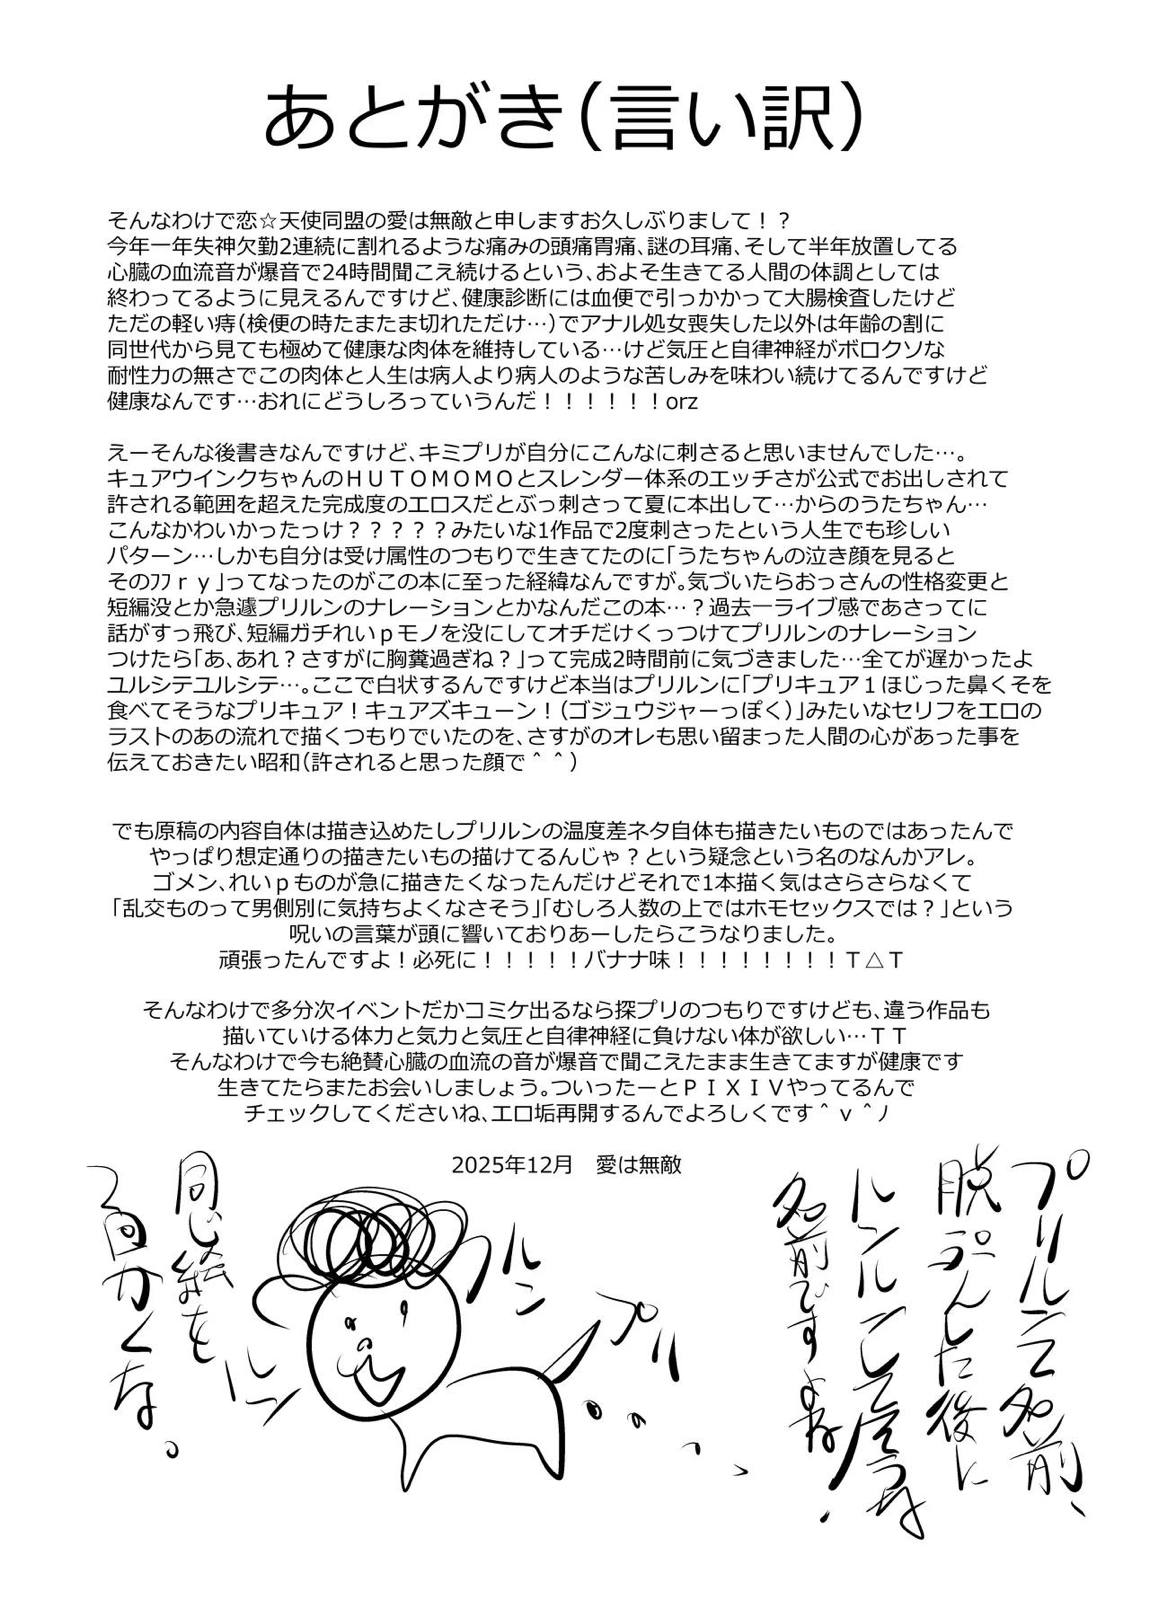 あとがき(言い訳)
そんなわけで恋☆天使同盟の愛は無敵と申しますお久しぶりまして！？
今年一年失神欠勤2連続に割れるような痛みの頭痛胃痛、謎の耳痛、そして半年放置してる
心臓の血流音が爆音で24時間聞こえ続けるという、およそ生きてる人間の体調としては
終わってるように見えるんですけど、健康診断には血便で引っかかって大腸検査したけど
ただの軽い痔(検便の時たまたま切れただけ…)でアナル処女喪失した以外は年齢の割に
同世代から見ても極めて健康な肉体を維持している…けど気圧と自律神経がボロクソな
耐性力の無さでこの肉体と人生は病人より病人のような苦しみを味わい続けてるんですけど
健康なんです…おれにどうしろっていうんだ！！！！！！orz
えーそんな後書きなんですけど、キミプリが自分にこんなに刺さると思いませんでした…。
キュアウインクちゃんのＨＵＴＯＭＯＭＯとスレンダー体系のエッチさが公式でお出しされて
許される範囲を超えた完成度のエロスだとぶっ刺さって夏に本出して…からのうたちゃん…
こんなかわいかったっけ？？？？？みたいな1作品で2度刺さったという人生でも珍しい
パターン…しかも自分は受け属性のつもりで生きてたのに「うたちゃんの泣き顔を見ると
そのﾌﾌｒｙ」ってなったのがこの本に至った経緯なんですが。気づいたらおっさんの性格変更と
短編没とか急遽プリルンのナレーションとかなんだこの本…？過去一ライブ感であさってに
話がすっ飛び、短編ガチれいｐモノを没にしてオチだけくっつけてプリルンのナレーション
つけたら「あ、あれ？さすがに胸糞過ぎね？」って完成2時間前に気づきました…全てが遅かったよ
ユルシテユルシテ…。ここで白状するんですけど本当はプリルンに「プリキュア１ほじった鼻くそを
食べてそうなプリキュア！キュアズキューン！(ゴジュウジャーっぽく)」みたいなセリフをエロの
ラストのあの流れで描くつもりでいたのを、さすがのオレも思い留まった人間の心があった事を
伝えておきたい昭和(許されると思った顔で＾＾)
でも原稿の内容自体は描き込めたしプリルンの温度差ネタ自体も描きたいものではあったんで
やっぱり想定通りの描きたいもの描けてるんじゃ？という疑念という名のなんかアレ。
ゴメン、れいｐものが急に描きたくなったんだけどそれで1本描く気はさらさらなくて
「乱交ものって男側別に気持ちよくなさそう」「むしろ人数の上ではホモセックスでは？」という
呪いの言葉が頭に響いておりあーしたらこうなりました。
頑張ったんですよ！必死に！！！！！バナナ味！！！！！！！！Ｔ△Ｔ
そんなわけで多分次イベントだかコミケ出るなら探プリのつもりですけども、違う作品も
描いていける体力と気力と気圧と自律神経に負けない体が欲しい…ＴＴ
そんなわけで今も絶賛心臓の血流の音が爆音で聞こえたまま生きてますが健康です
生きてたらまたお会いしましょう。ついったーとＰＩＸＩＶやってるんで
チェックしてくださいね、エロ垢再開するんでよろしくです＾ｖ＾ﾉ
2025年12月　愛は無敵
プリルンて名前、
脱ぷんした後に
ルンルンしてそうな
名前ですよね！
プリ
ルン
ルン
同じ絵を
2回かくな。